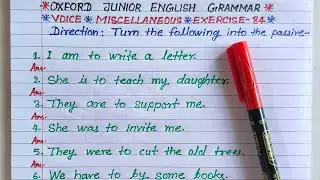 *OXFORD JUNIOR ENGLISH GRAMMAR
*VOICE * MISCELLANEOUS *EXERCISE-84*
Direction: Turn the following into the passive--
1. I am to write a letter.
Ans.
2. She is to teach my daughter.
Ans.
3. They are to support me.
Ans.
4. She was to invite me.
Ans.
5. They were to cut the old trees.
Ans.
6. We have to by some books.